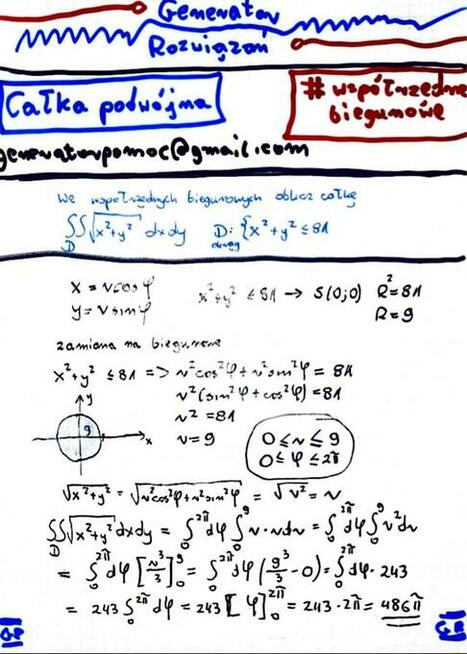 Generator
Rozwiązań
Całka podwójna
# współrzędne
biegunowe
generatorpomoc@gmail.com
We współrzędnych biegunowych oblicz całkę
∬√(x²+y²) dxdy D: {x²+y² ≤ 81
D okrąg
x = r cos φ x²+y² ≤ 81 → S(0;0) R² = 81
y = r sin φ R = 9
zamiana na biegunowe
x²+y² ≤ 81 => r²cos²φ + r²sin²φ = 81
r²(sin²φ + cos²φ) = 81
y r² = 81
9 x r = 9 0 ≤ r ≤ 9
0 ≤ φ ≤ 2π
√(x²+y²) = √(r²cos²φ + r²sin²φ) = √r² = r
∬_D √(x²+y²) dxdy = ∫₀^2π dφ ∫₀^9 r·r dr = ∫₀^2π dφ ∫₀^9 r² dr
= ∫₀^2π dφ [r³/3]₀^9 = ∫₀^2π dφ (9³/3 - 0) = ∫₀^2π dφ · 243
= 243 ∫₀^2π dφ = 243 [φ]₀^2π = 243 · 2π = 486π
GR GR